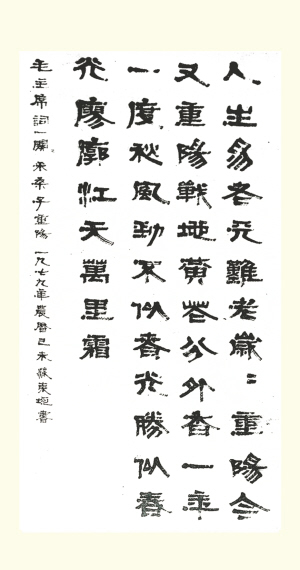 人生易老天難老歲〻重陽今
又重陽戰地黃花分外香一年
一度秋風勁不似春光勝似春
光廖廓江天萬里霜
毛主席詞一闋采桑子重陽一九七九年農曆己未蘇東垣書